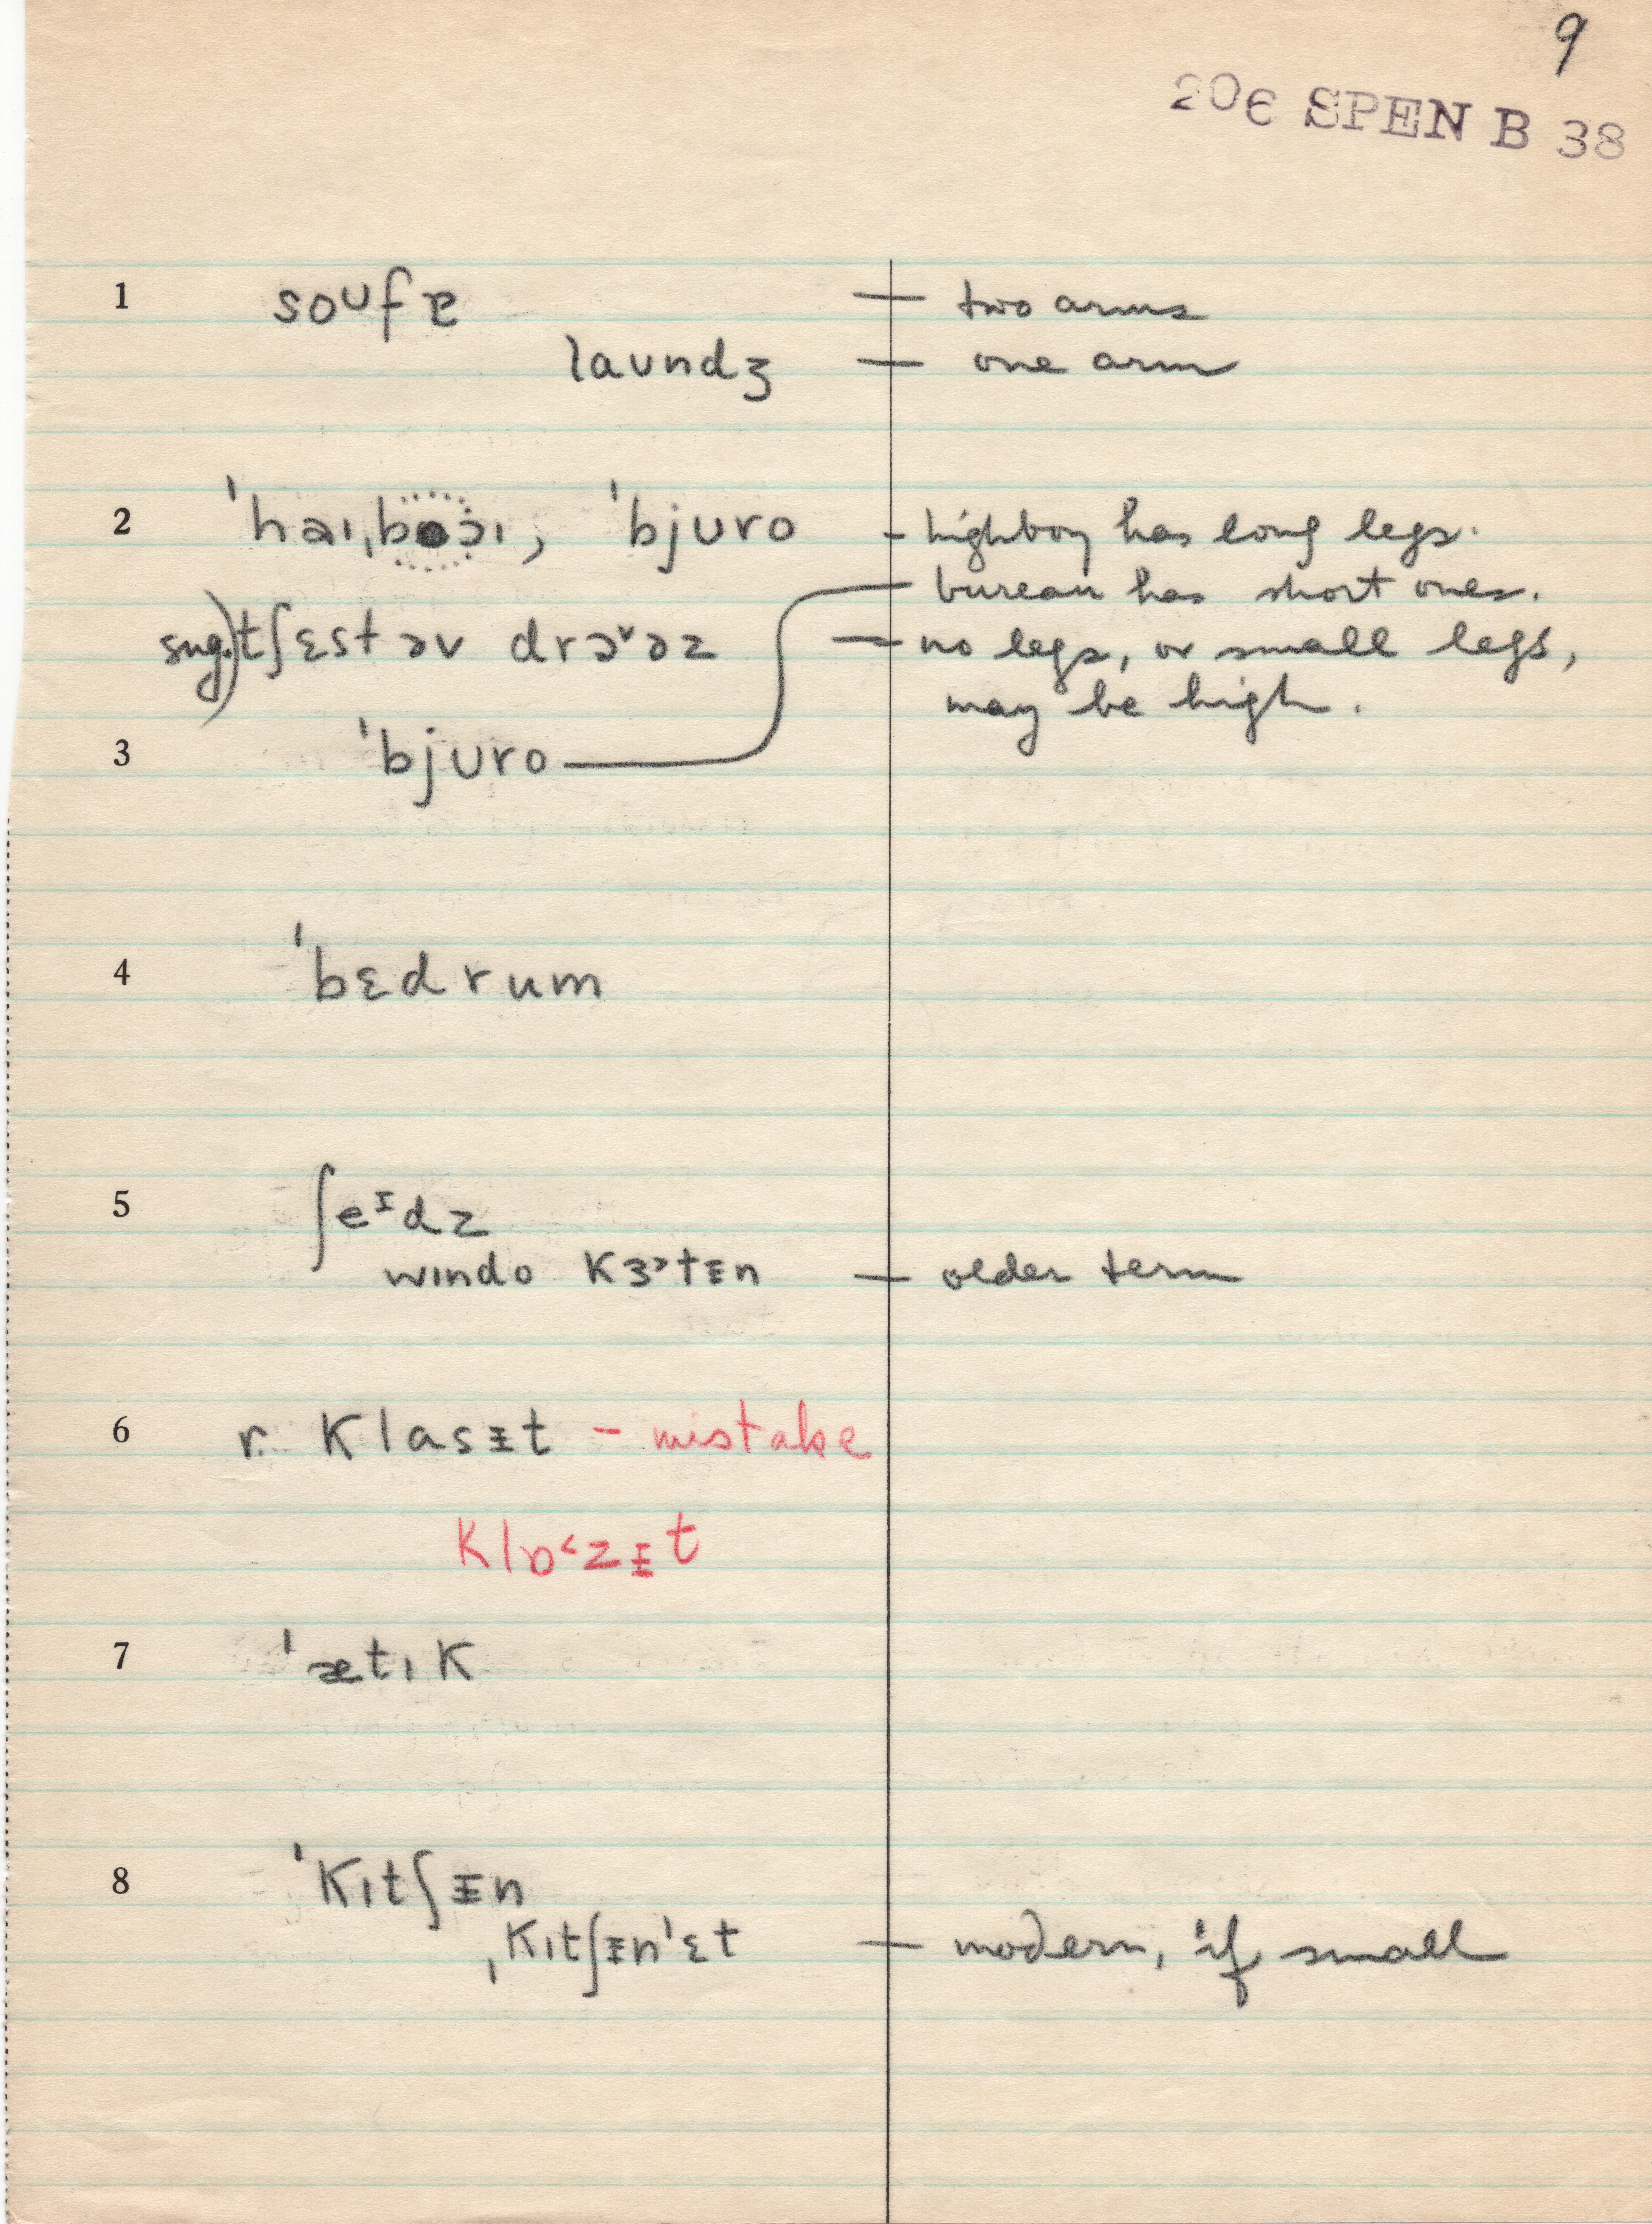 9
206 SPEN B 38
1 soʊfɐ — two arms
laʊndʒ — one arm
2 ˈhaɪˌbɔɪ, ˈbjʊro - highboy has long legs.
bureau has short ones.
sug.) tʃɛst əv drɔ˅əz — no legs, or small legs,
may be high.
3 ˈbjʊro
4 ˈbɛdrum
5 ʃeᶦdz
wɪndo kɝtᵻn — older term
6 r. klasᵻt - mistake
klɒ˂zᵻt
7 ˈætɪk
8 ˈkɪtʃᵻn
ˌkɪtʃᵻnˈɛt — modern, if small